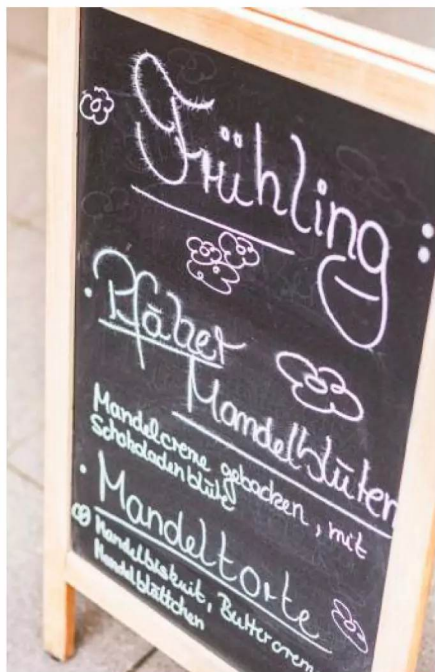 Frühling:
· Pfälzer
Mandelblüten
Mandelcreme gebacken, mit
Schokoladenblüte
· Mandeltorte
Mandelbiskuit, Buttercrem
Mandelblättchen